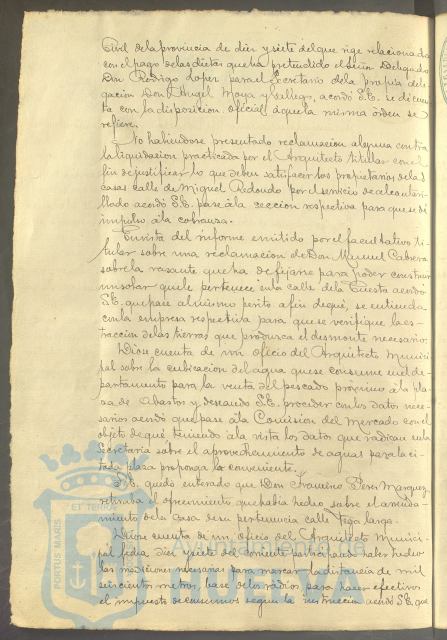 Civil de la provincia de diez y siete del que rige relacionada
con el pago de las dietas que ha pretendido el Señor Delegado
Don Rodrigo Lopez para el Secretario de la propia dele
gacion Don Angel Moya y Gallego, acordó S.E. se dé cuen
ta con la disposicion oficial á que la misma órden se
refiere.
No habiendose presentado reclamacion alguna contra
la liquidacion practicada por el Arquitecto titular con el
fin de justificar lo que deben satisfacer los propietarios de las
casas calle de Miguel Redondo por el servicio de alcantari
llado acordó S.E. pase á la seccion respectiva para que se dé
impulso á la cobranza.
En vista del informe emitido por el facultativo ti
tular sobre una reclamacion de Don Manuel Cabrera
sobre la rasante que ha de fijarse para poder construir
un solar que le pertenece en la calle de la Cuesta acordó
S.E. que pase al mismo perito á fin de que, se entienda
con la empresa respectiva para que se verifique la es-
traccion de las tierras que produzca el desmonte necesario.
Diose cuenta de un oficio del Arquitecto Munici
pal sobre la cubicacion del agua que se consume en el de
partamento para la venta del pescado próximo á la pla
za de Abastos y deseando S.E. proceder con los datos nece
sarios acordó que pase á la Comision del Mercado con el
objeto de que, teniendo á la vista los datos que radican en la
Secretaria sobre el aprovechamiento de aguas para la ci
tada plaza proponga lo conveniente.
S.E. quedó enterado que Don Francisco Perez Marquez
retiraba el ofrecimiento que habia hecho sobre el arrenda
miento de la casa de su pertenencia calle Vega larga.
Diose cuenta de un oficio del Arquitecto Munici
pal fecha diez y siete del corriente participando haber hecho
las mediciones necesarias para marcar la distancia de mil
seiscientos metros, base de los radios para hacer efectivo
el impuesto de consumos segun la instruccion acordó S.E. que
PORTUS MARIS ET TERRAE
Ayuntamiento de
HUELVA